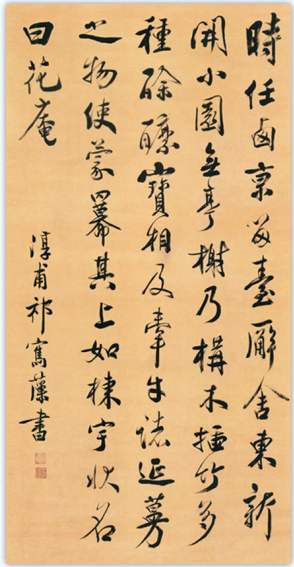 時任西京留臺廨舍東新
開小園無亭榭乃構木插竹多
種酴醿寶相及牽牛諸延蔓
之物使蒙羃其上如棟宇狀名
曰花庵
淳甫祁寯藻書